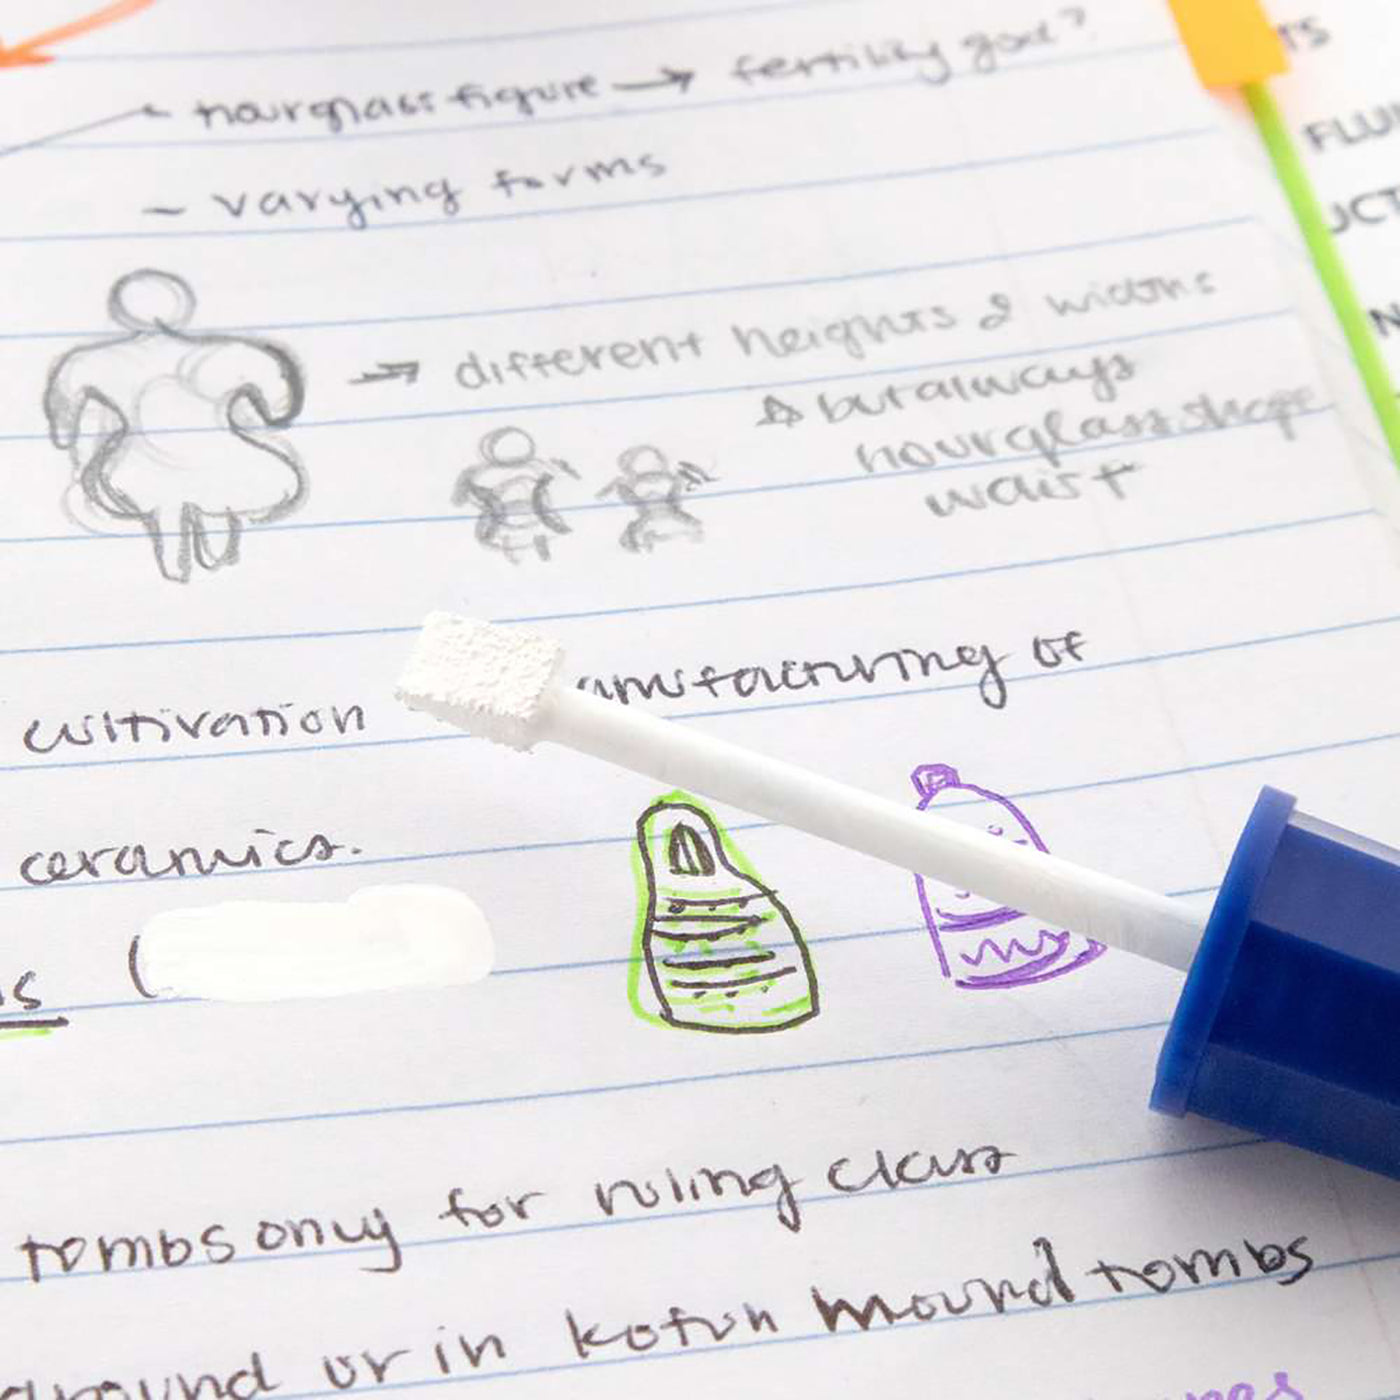 hourglass figure → fertility god?
- varying forms
→ different heights & widths
but always
hourglass shape
waist
cultivation anufacturing of
ceramics.
us (
tombs only for ruling class
ground or in kofun mound tombs
TS
FLU
UCT
N